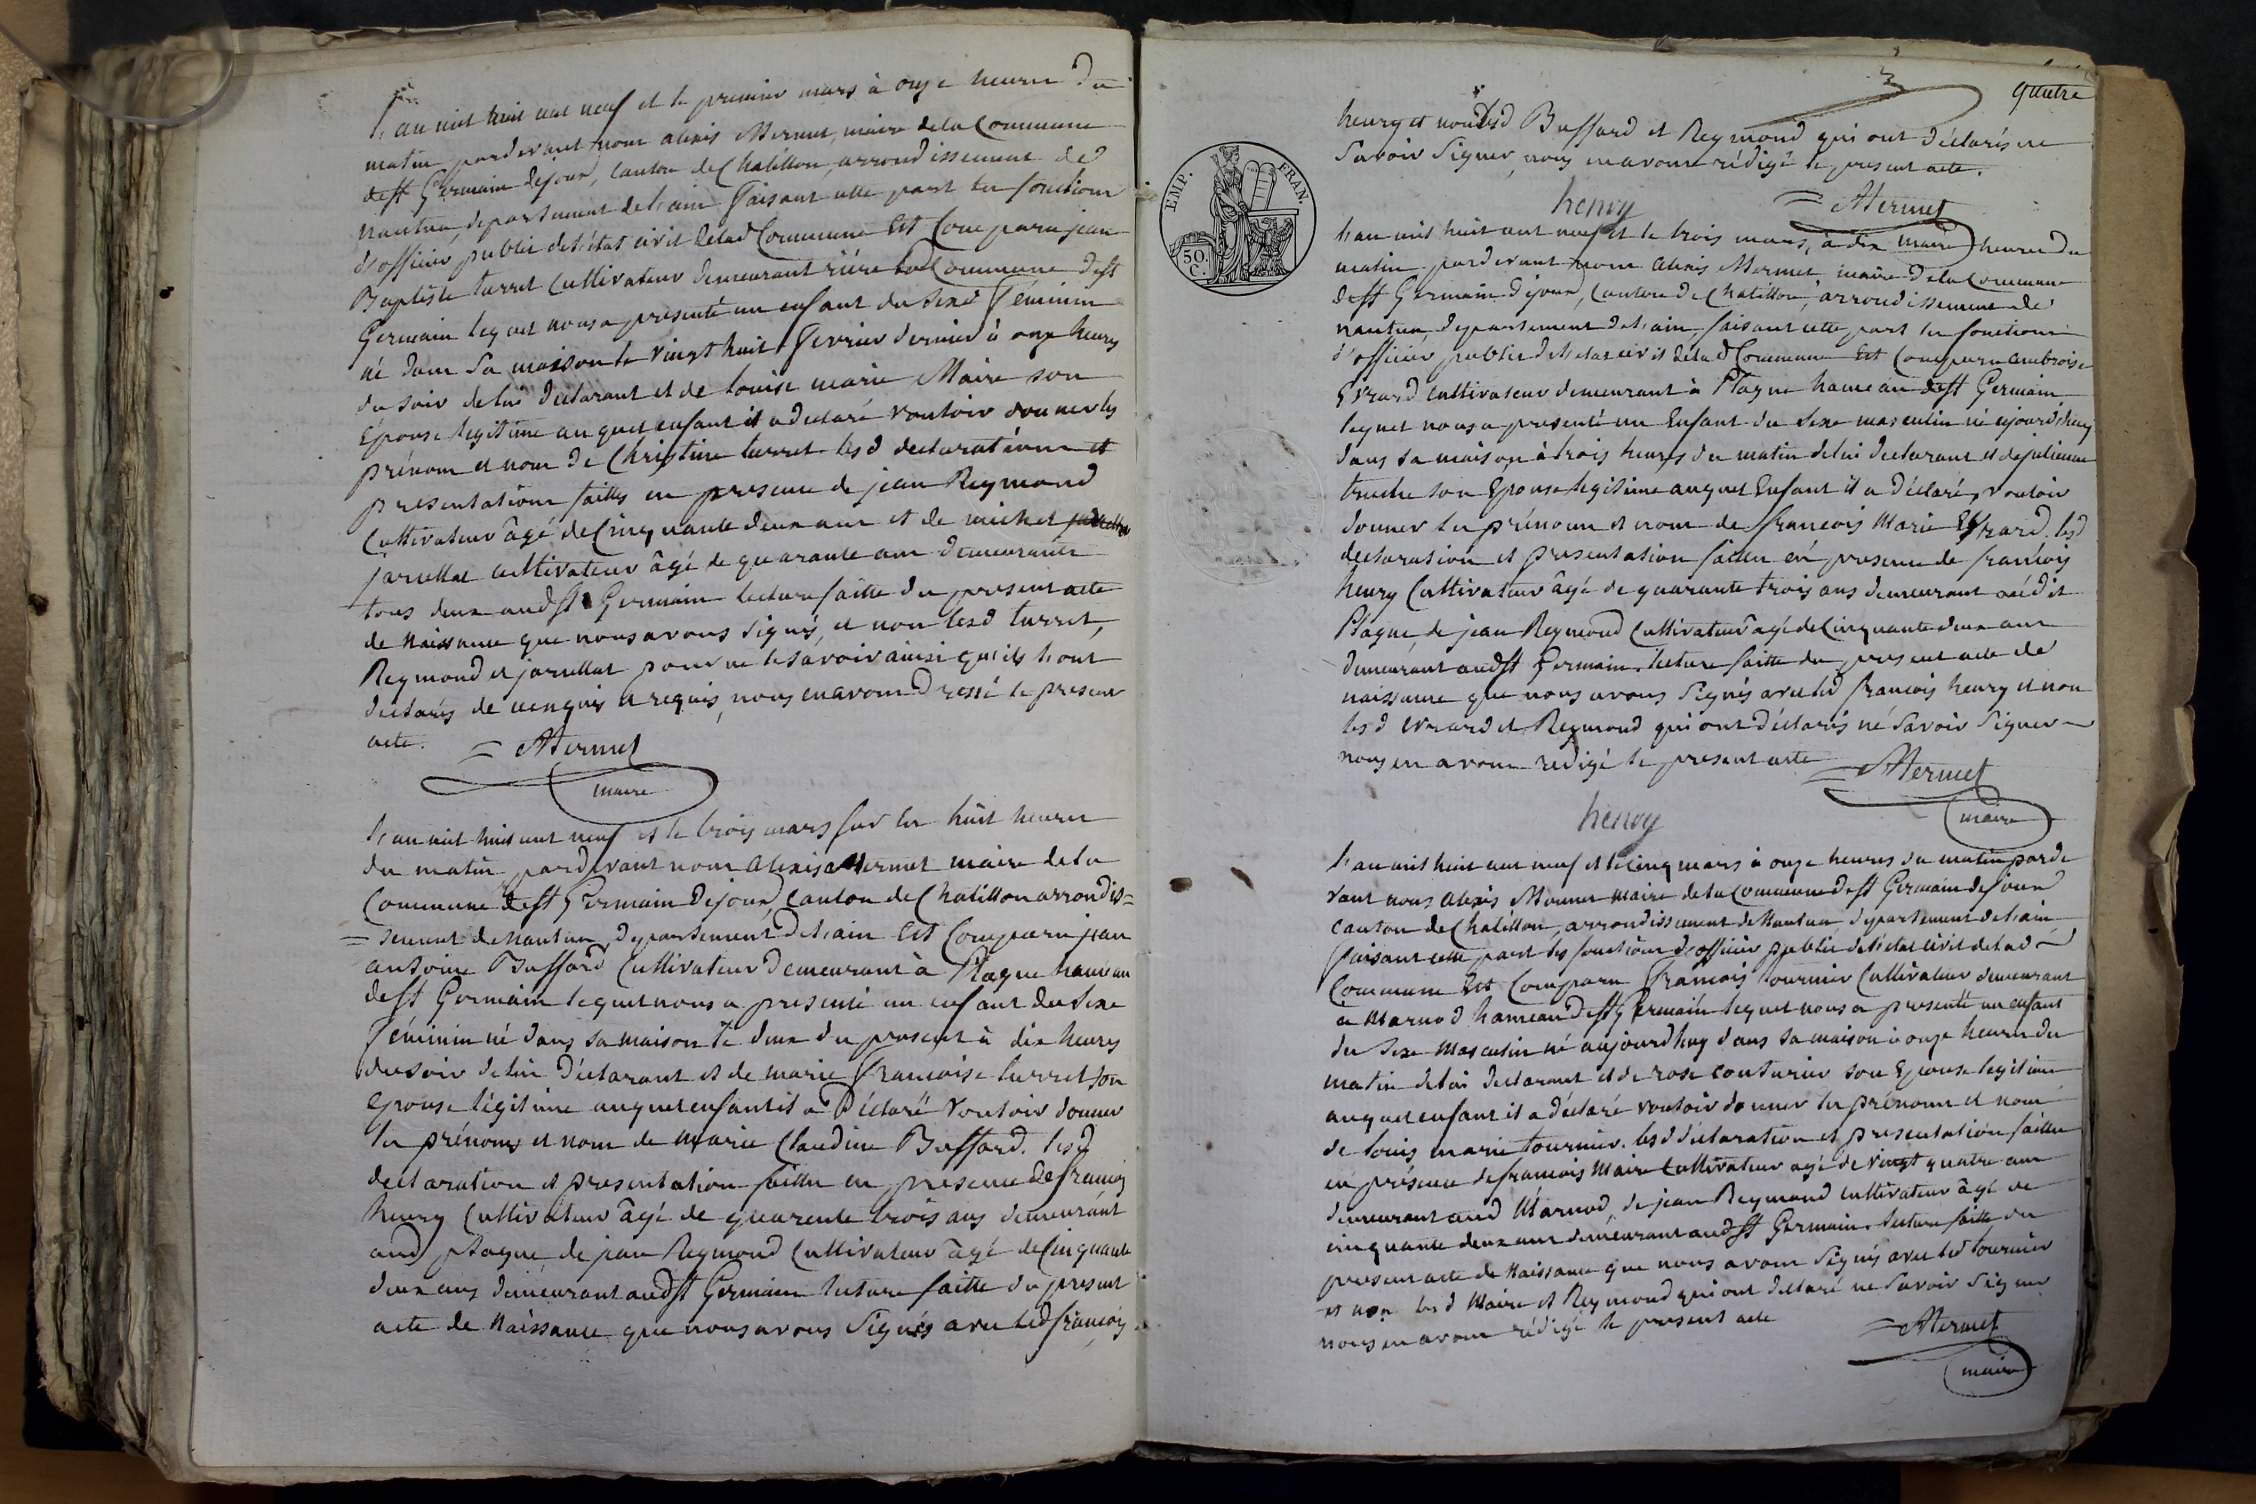 L'an mil huit cent neuf et le premier mars à onze heures du
matin pardevant nous alexis Mermet, maire de la Commune
de st Germain dejoux, canton de Chatillon, arrondissement de
nantua, departement de l'ain faisant cette part les fonctions
d'officier public de l'état civil de lad Commune Est Comparu jean
Baptiste turret Cultivateur demeurant rière lad Commune de st
Germain lequel nous a présenté un enfant du sexe féminin
né dans sa maison le vingt huit fevrier dernier à onze heures
du soir de lui declarant et de louise marie Maire son
Epouse legitime auquel enfant il a declaré vouloir donner les
prénom et nom de Christine turret lesd declarations et
presentations faittes en presence de jean Reymond
Cultivateur âgé de Cinquante deux ans et de michel
jarrellat cultivateur âgé de quarante ans demeurants
tous deux aud st Germain lecture faitte du present acte
de Naissance que nous avons signés, et non lesd turret,
Reymond et jarrellat pour ne le savoir ainsi qu'ils l'ont
declarés de ce enquis et requis, nous en avons dressé le present
acte. = AMermet
maire
L'an mil huit cent neuf et le trois mars sur les huit heures
du matin pardevant nous alexis Mermet maire de la
Commune de st Germain Dejoux, canton de Chatillon arrondis=
= sement de nantua, departement de l'ain Est Comparu jean
antoine Buffard Cultivateur demeurant à Plagne hameau
de st Germain lequel nous a presenté un enfant du sexe
féminin né dans sa maison le deux du present à dix heures
du soir de lui déclarant et de marie francoise turret son
epouse légitime auquel enfant il a Déclaré vouloir donner
les prénoms et nom de marie Claudine Buffard. lesd
declaration et presentation faittes en presence de francois
henry Cultivateur âgé de quarente trois ans demeurant
aud plagne, de jean Reymond Cultivateur âgé de Cinquante
deux ans demeurant aud st Germain lecture faitte du present
acte de Naissance que nous avons signés avec led francois
quatre
henry et non lesd Buffard et Reymond qui ont déclarés ne
savoir signer, nous en avons rédigé le present acte.
henry = AMermet
maire
EMP. FRAN.
50. C.
L'an mil huit cent neuf et le trois mars, à dix heures du
matin pardevant nous alexis Mermet maire de la Commune
de st Germain dejoux, Canton de Chatillon, arrondissement de
nantua departement de l'ain, faisant cette part les fonctions
d'officier public de l'etat civil de lad Commune Est Comparu ambroise
Evrard Cultivateur demeurant à Plagne hameau de st Germain
lequel nous a presenté un Enfant du sexe masculin né ajourd'huy
dans sa maison à trois heures du matin de lui declarant et de julienne
truche son Epouse legitime auquel Enfant il a déclaré vouloir
donner les prénoms et nom de francois Marie Evrard. lesd
declaration et presentation faittes en presence de francois
henry Cultivateur âgé de quarante trois ans demeurant aud
Plagne, de jean Reymond Cultivateur âgé de Cinquante deux ans
demeurant aud st Germain. lecture faitte du present acte de
naissance que nous avons signés avec led francois henry et non
lesd evrard et Reymond qui ont déclarés né savoir signer
nous en avons redigé le present acte = AMermet
maire
henry
L'an mil huit cent neuf et le cinq mars à onze heures du matin parde
vant nous alexis Mermet maire de la Commune de st Germain de joux
canton de Chatillon, arrondissement de Nantua, departement de l'ain
faisant cette part les fonctions d'officier public de l'etat civil de lad
Commune Est Comparu francois tournier Cultivateur demeurant
a Marnod hameau de st Germain lequel nous a presenté un enfant
du sexe Masculin né aujourd'huy dans sa maison à onze heures du
matin de lui declarant et de rose couturier son Epouse legitime
auquel enfant il a déclaré vouloir donner les prénoms et nom
de louis marie tournier. lesd déclaration et presentation faittes
en présence de francois Maire Cultivateur agé de vingt quatre ans
demeurant aud Marnod, de jean Reymond cultivateur âgé de
cinquante deux ans demeurant aud st Germain. lecture faitte du
present acte de Naissance que nous avons signés avec led tournier
et non lesd Maire et Reymond qui ont declaré ne savoir signer
nous en avons rédigé le present acte = AMermet
maire